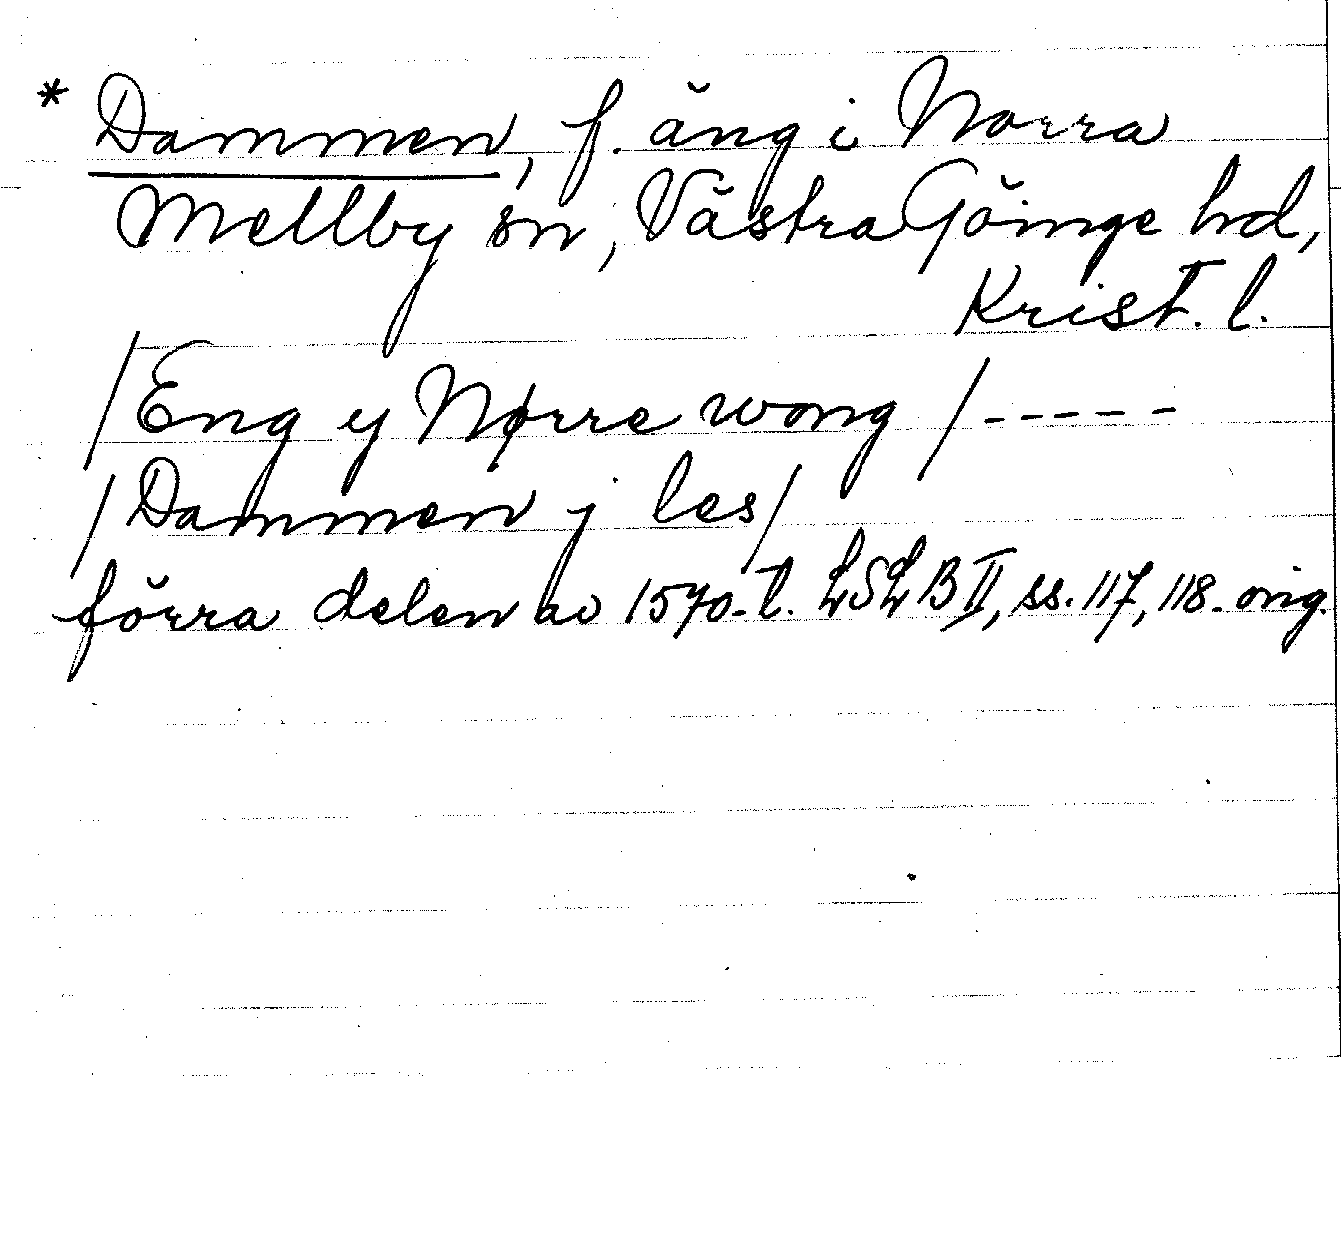 * Dammen, f. äng i Norra
Mellby sn, Västra Göinge hd,
Krist. l.
/Eng y Nørre wong /-----
/Dammen j les/
förra delen av 1570-t. LSLB II, ss. 117, 118. orig.